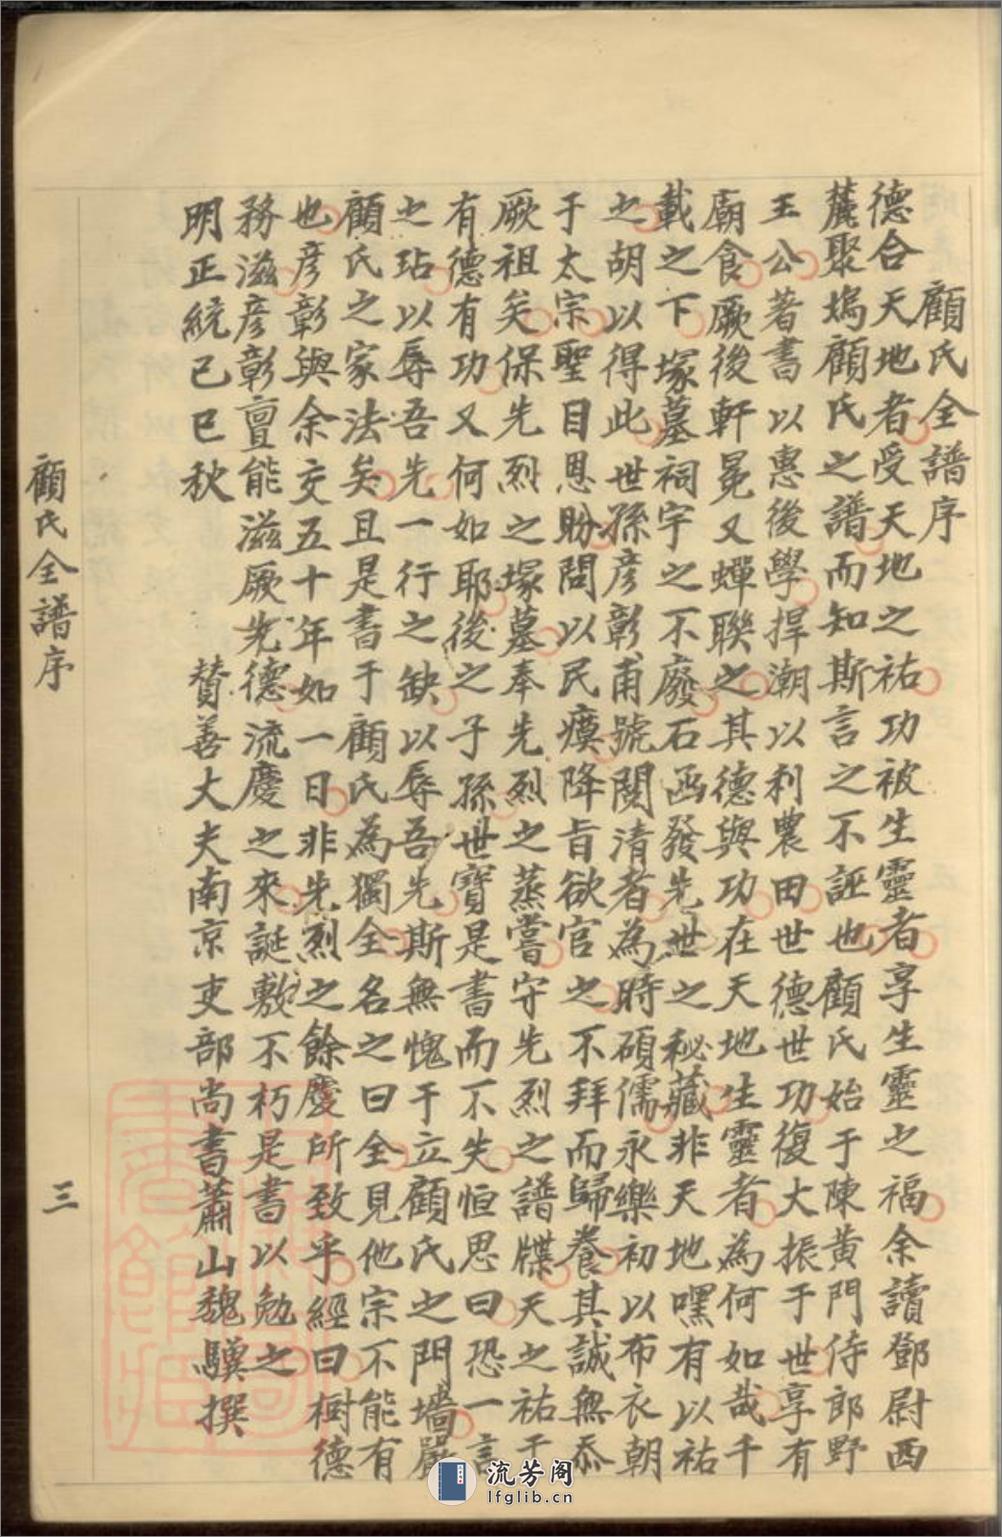 顧氏全譜序
德合天地者受天地之祐功被生靈者享生靈之福余讀鄧尉西
麓聚塢顧氏之譜而知斯言之不誣也顧氏始于陳黃門侍郎野
王公著書以惠後學捍潮以利農田世德世功復大振于世享有
廟食厥後軒冕又蟬聯之其德與功在天地生靈者為何如哉千
載之下塚墓祠宇之不廢石函發先世之秘藏非天地嘿有以祐
之胡以得此世孫彦彰甫號閑清者為時碩儒永樂初以布衣朝
于太宗聖目恩盼問以民瘼降旨欲官之不拜而歸養其誠無忝
厥祖矣保先烈之塚墓奉先烈之蒸嘗守先烈之譜牒天之祐于
有德有功又何如耶後之子孫世寶是書而不失恒思曰恐一言
之玷以辱吾先一行之缺以辱吾先斯無愧于立顧氏之門墻嚴
顧氏之家法矣且是書于顧氏為獨全名之曰全見他宗不能有
也彦彰與余交五十年如一日非先烈之餘慶所致乎經曰樹德
務滋彦彰亶能滋厥先德流慶之來誕敷不朽是書以勉之
明正統己巳秋 贊善大夫南京吏部尚書蕭山魏驥撰
顧氏全譜序 三
流芳阁
lfglib.cn